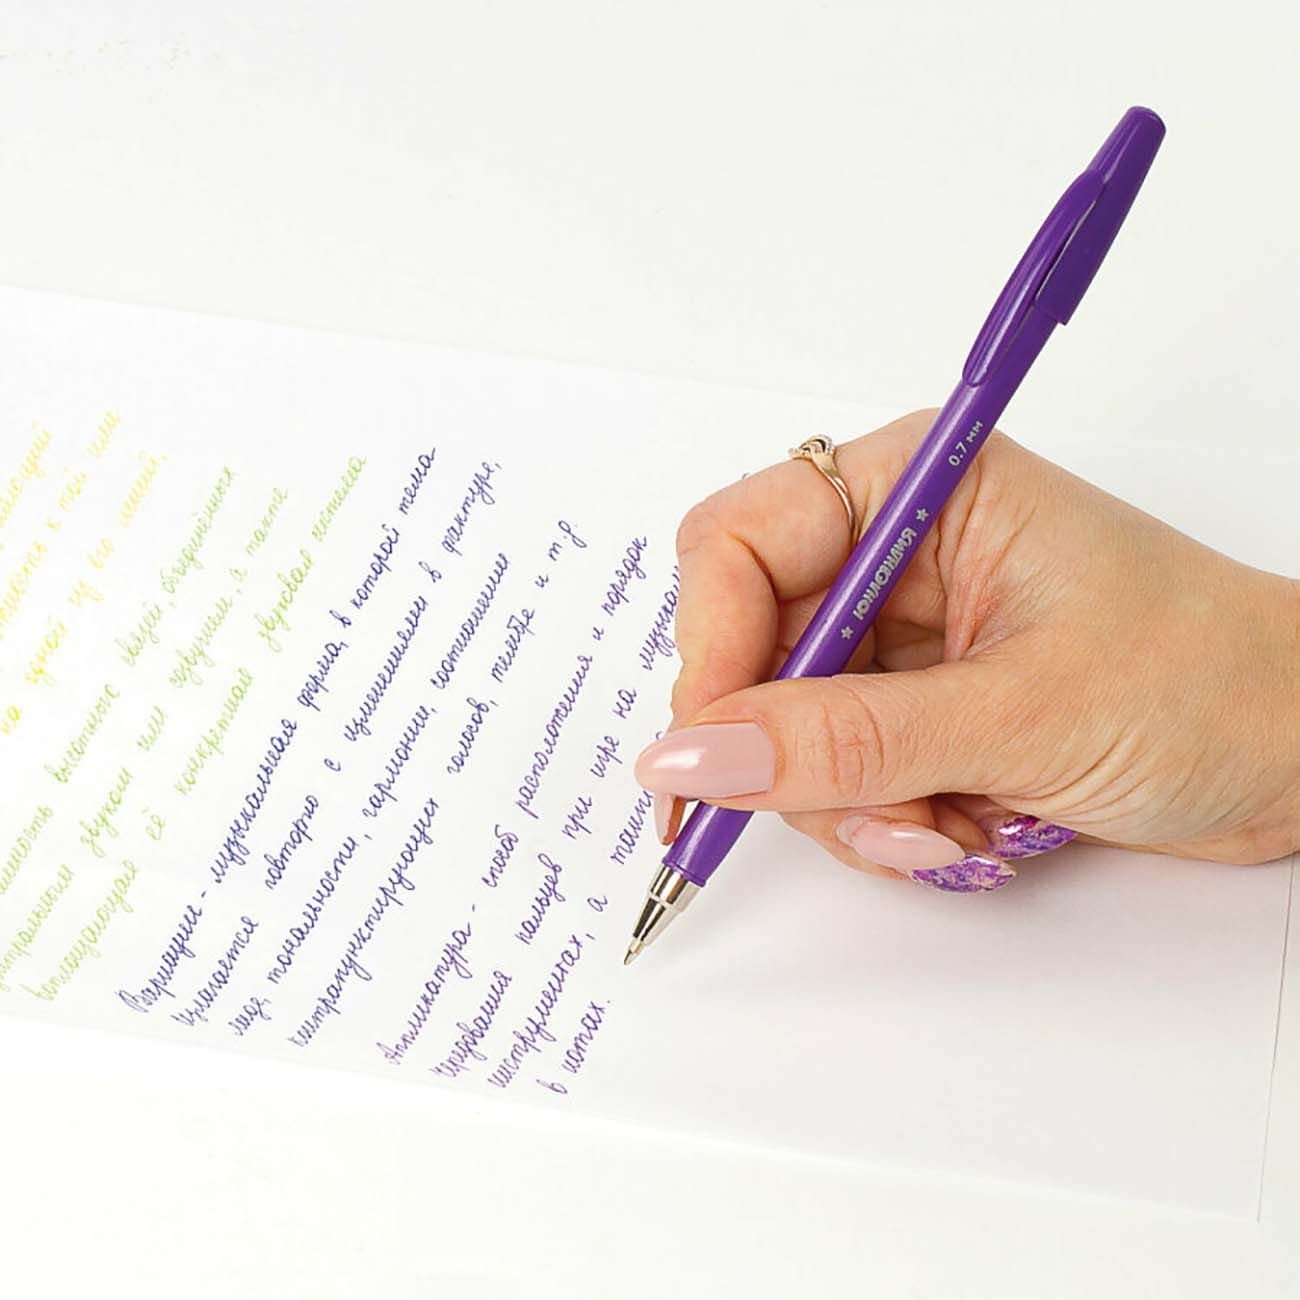 ность к той или
на одной из его линий.
высотных связей, объединённых
звуком или созвучием, а также
воплощающая её конкретная звуковая система
Вариации - музыкальная форма, в которой тема
излагается повторно с изменениями в фактуре,
ладе, тональности, гармонии, соотношении
контрапунктирующих голосов, тембре и т.д.
Аппликатура - способ расположения и порядок
чередования пальцев при игре на музыкал
инструментах, а также
в нотах.
ЮНЛАНДИЯ
0.7 мм